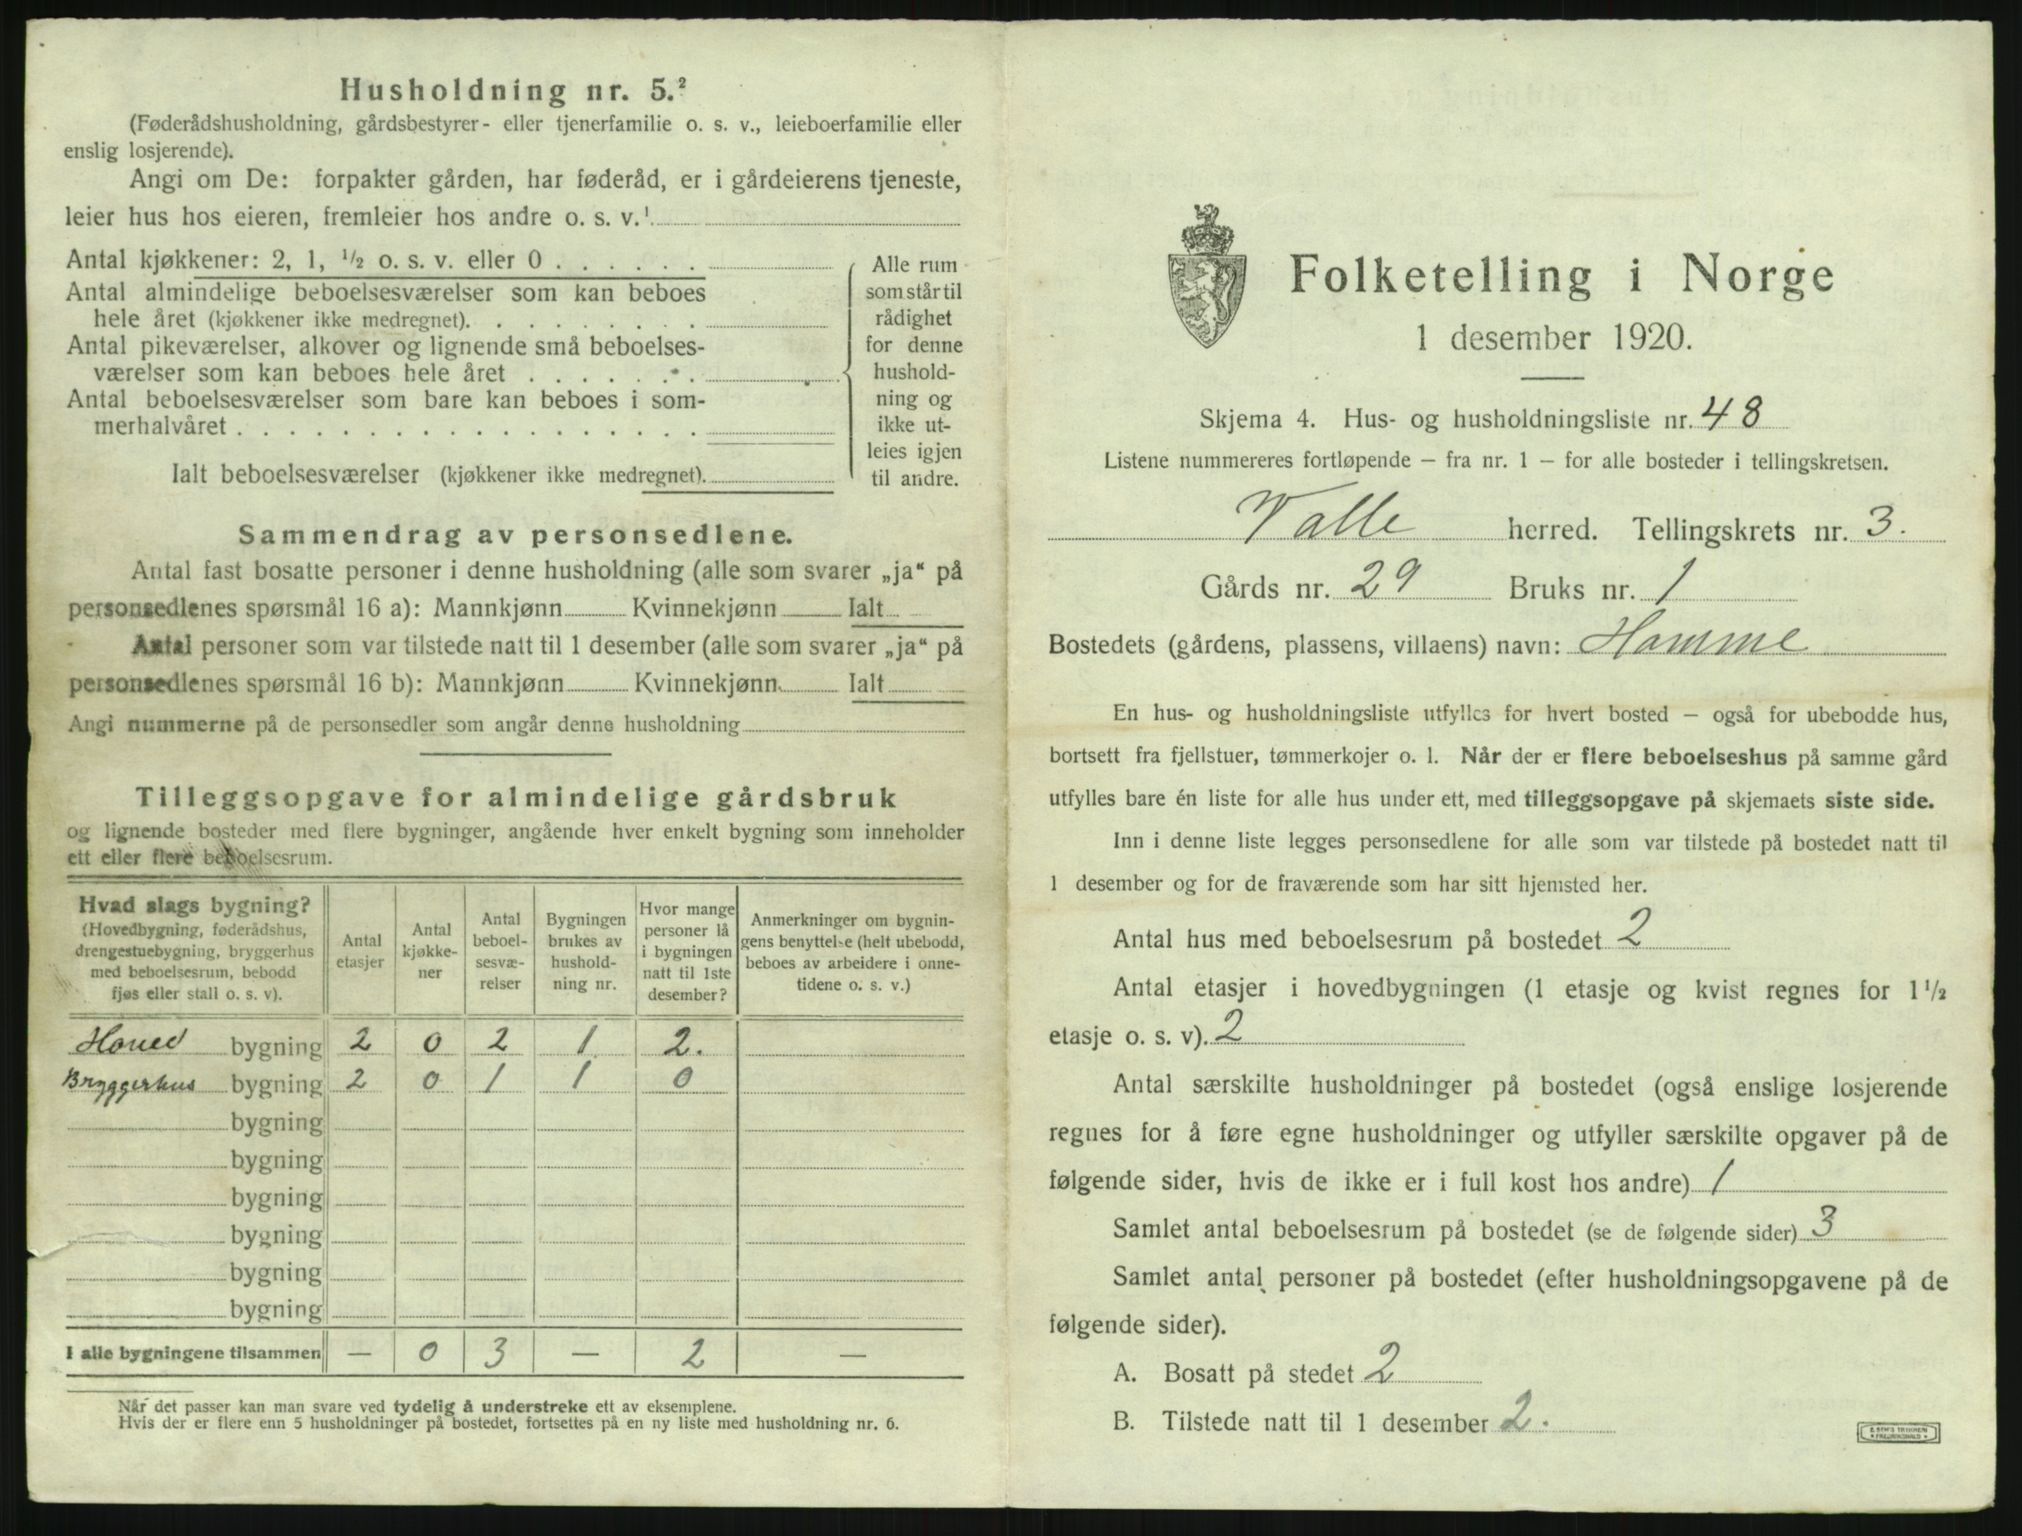 Husholdning nr. 5.²
(Føderådshusholdning, gårdsbestyrer- eller tjenerfamilie o. s. v., leieboerfamilie eller
enslig losjerende).
Angi om De: forpakter gården, har føderåd, er i gårdeierens tjeneste,
leier hus hos eieren, fremleier hos andre o. s. v.¹
Antal kjøkkener: 2, 1, ½ o. s. v. eller 0 . . . . . .
Antal almindelige beboelsesværelser som kan beboes
hele året (kjøkkener ikke medregnet). . . . . . . . .
Antal pikeværelser, alkover og lignende små beboelses-
værelser som kan beboes hele året . . . . . . .
Antal beboelsesværelser som bare kan beboes i som-
merhalvåret . . . . . . . . . . . . . . . . . .
Ialt beboelsesværelser (kjøkkener ikke medregnet).
Alle rum
som står til
rådighet
for denne
hushold-
ning og
ikke ut-
leies igjen
til andre.
Sammendrag av personsedlene.
Antal fast bosatte personer i denne husholdning (alle som svarer „ja“ på
personsedlenes spørsmål 16 a): Mannkjønn Kvinnekjønn Ialt
Antal personer som var tilstede natt til 1 desember (alle som svarer „ja“ på
personsedlenes spørsmål 16 b): Mannkjønn Kvinnekjønn Ialt
Angi nummerne på de personsedler som angår denne husholdning
Tilleggsopgave for almindelige gårdsbruk
og lignende bosteder med flere bygninger, angående hver enkelt bygning som inneholder
ett eller flere beboelsesrum.
Hvad slags bygning?
(Hovedbygning, føderådshus,
drengestuebygning, bryggerhus
med beboelsesrum, bebodd
fjøs eller stall o. s. v).
Antal
etasjer
Antal
kjøkke-
ner
Antal
beboel-
sesvæ-
relser
Bygningen
brukes av
hushold-
ning nr.
Hvor mange
personer lå
i bygningen
natt til 1ste
desember?
Anmerkninger om bygnin-
gens benyttelse (helt ubebodd,
beboes av arbeidere i onne-
tidene o. s. v.)
Hoved bygning 2 0 2 1 2.
Bryggerhus bygning 2 0 1 1 0
bygning
bygning
bygning
bygning
bygning
bygning
I alle bygningene tilsammen — 0 3 — 2 —
Når det passer kan man svare ved tydelig å understreke ett av eksemplene.
Hvis der er flere enn 5 husholdninger på bostedet, fortsettes på en ny liste med husholdning nr. 6.
Folketelling i Norge
1 desember 1920.
Skjema 4. Hus- og husholdningsliste nr. 48
Listene nummereres fortløpende – fra nr. 1 – for alle bosteder i tellingskretsen.
Valle herred. Tellingskrets nr. 3.
Gårds nr. 29 Bruks nr. 1
Bostedets (gårdens, plassens, villaens) navn: Homme
En hus- og husholdningsliste utfylles for hvert bosted – også for ubebodde hus,
bortsett fra fjellstuer, tømmerkojer o. l. Når der er flere beboelseshus på samme gård
utfylles bare én liste for alle hus under ett, med tilleggsopgave på skjemaets siste side.
Inn i denne liste legges personsedlene for alle som var tilstede på bostedet natt til
1 desember og for de fraværende som har sitt hjemsted her.
Antal hus med beboelsesrum på bostedet 2
Antal etasjer i hovedbygningen (1 etasje og kvist regnes for 1½
etasje o. s. v). 2
Antal særskilte husholdninger på bostedet (også enslige losjerende
regnes for å føre egne husholdninger og utfyller særskilte opgaver på de
følgende sider, hvis de ikke er i full kost hos andre) 1
Samlet antal beboelsesrum på bostedet (se de følgende sider) 3
Samlet antal personer på bostedet (efter husholdningsopgavene på de
følgende sider).
A. Bosatt på stedet 2
B. Tilstede natt til 1 desember 2.